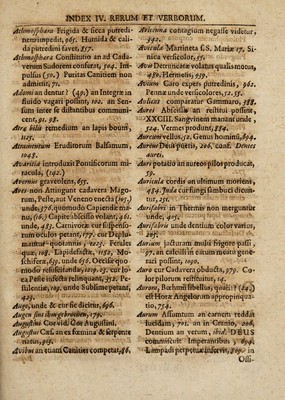 INDEX IV. RERUM ET VERBORUM.
Athmosphæra Frigida & sicca putredi-
nem impedit, 65. Humida & cali-
da putredini favet, 857.
Athmosphæra Conditurio an ad Cada-
verum Sudorem conferat, 504. Im-
pulsus (50.) Puritas Canitiem non
admittit, 71.
Adami an dentur? (49.) an Integræ in
fluvio vagari possunt, 102. an Sen-
sum inter se distantibus communi-
cent, 91. 98.
Atra bilis remedium an lapis bouni,
1127.
Atramentum Eruditorum Balsamum,
1048.
Avaritia introduxit Pontificorum mi-
racula, (142.)
Avernus graveolens, 655.
Aves non Attingunt cadavera Mago-
rum, Peste, aut Veneno enecta (105.)
unde, 276. quomodo Capiendæ ma-
nu, (16.) Capite abscisso volant, 461.
unde, 453. Carnivoræ cur suspenso-
rum oculos petant, 177. cur Duplu-
mantur quotannis, 1023. Ferales
quæ, 108. Lapidefactæ, 1152. Mo-
schiferæ, 651. unde 656. Oecisæ quo-
modo refiscitandæ, 1019. 23. cur lo-
ca Peste infecta relinquant, 252. Pe-
stilentiæ, 109. unde Sublime petant,
423.
Auge, unde & cur sic dicatæ, 696.
Augen sins ihm gebrochen, 179.
Augustini Cor vid. Cor Augustini.
Augustus Cæs. an ex fœmina & serpente
natus, 425.
Avibus an etiam Canities competat, 46.
Avicenna contagium negavit videtur,
342.
Avicula Martineta f. S. Mariæ 17. Si-
nica versicolor, 65.
Avis Dormientiæ volatus quasi motus,
480. Hermetis, 939.
Avium Caro expers putredinis, 962.
Pennæ unde versicolores, 72. 57.
Aulicus comparatur Gammaro, 358.
Aures Abscissas an restitui possint,
XXCIII. Sanguinem manant unde,
524. Vermes produnt, 854.
Aureum vellus, 52. Genus hominū, 894.
Aureus Deus pueris, 206. conf. Dentes
aurei.
Auri potatio an aureos pilos producat,
59.
Auricula cordis an ultimum moriens,
454. Judæ cur fungi sambuci dican-
tur, 251.
Aurifabri in Thermis non mergantur
unde, 405.
Aurifabris unde dentium color varius,
205.
Aurium jacturam multi frigore passi,
377. an calculi in earum meatu gene-
rari possint, 1090.
Auro cur Cadavera obducta, 979. Co-
lor pilorum restituitur, 14.
Aurora, Böehmii libellus, qualis? (24.)
est Horæ Angelorum appropinqua-
tio, 754.
Aurum Assumtum an carnem reddat
lucidam, 701. an in Cranio, 206.
Dentium an verum, ibid. DEUS
commiscuit Imperantibus, 894.
Lampadi perpetuæ inservit, 899. in
Offi-